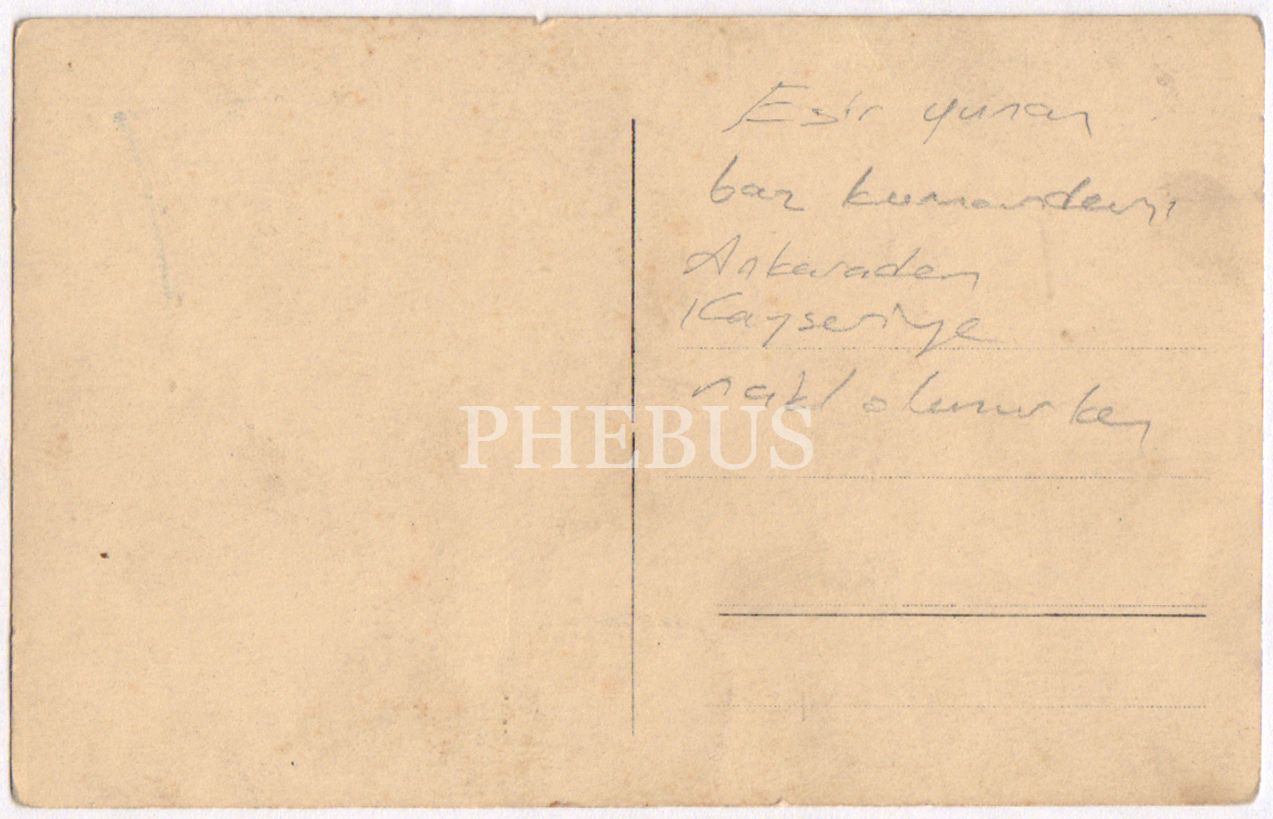 Esir yunan
baz kumandanı
Ankaradan
Kayseriye
nakl olunurken
PHEBUS